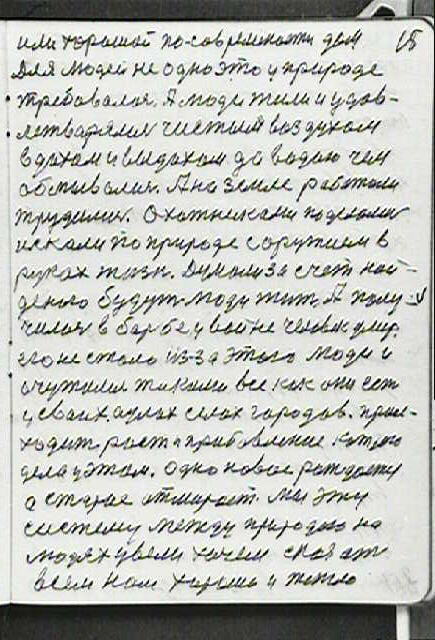 или хорошой по-современости дом 15
Для людей не одно это у природе
требовался. А люди жили и удов-
летваряли чистым воздухом
вдохом и выдохом да водою чем
обмывались. А на земле работали
трудились. Охотниками поделали
искали по природе с оружием в
руках жизн. Думали за счет най-
деного будут люди жит. А полу-
чился в борбе, у войне человек умер.
его не стало из-за этого люди и
очутились такими все как они ест
у своих аулах селах городов. проис-
ходит рост и прибовление
дела у этом. Одно новое рождается
а старое отмирает. Мы эту
систему между природою на
людях увели хочем сказат
всем нам хорошо и тепло